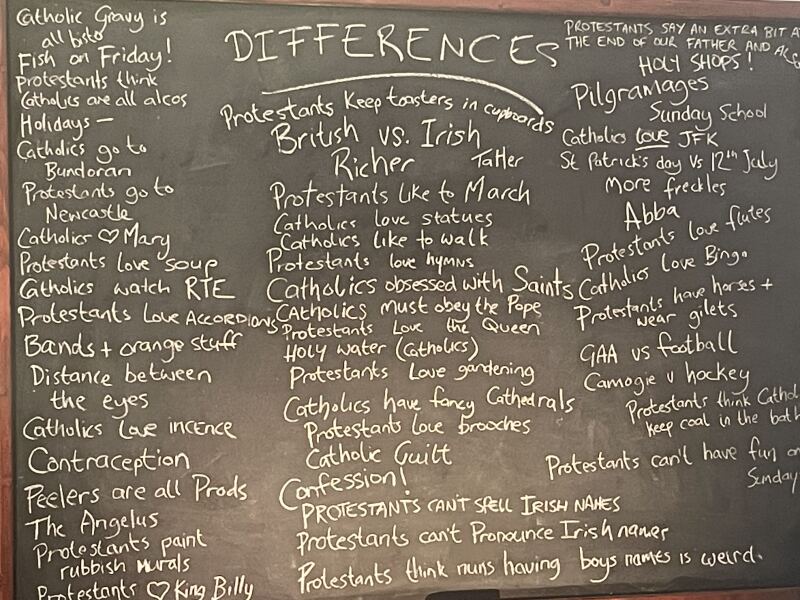 Catholic Gravy is
all bits
Fish on Friday!
Protestants think
Catholics are all alcos
Holidays —
Catholics go to
Bundoran
Protestants go to
Newcastle
Catholics ♡ Mary
Protestants love soup
Catholics watch RTE
Protestants Love Accordions
Bands + orange stuff
Distance between
the eyes
Catholics love incence
Contraception
Peelers are all Prods
The Angelus
Protestants paint
rubbish murals
Protestants ♡ King Billy
DIFFERENCES
Protestants Keep toasters in cupboards
British vs. Irish
Richer Taller
Protestants like to March
Catholics love statues
Catholics like to walk
Protestants love hymns
Catholics obsessed with Saints
CAtholics must obey the Pope
Protestants Love the Queen
HOLY WATER (Catholics)
Protestants Love gardening
Catholics have fancy Cathedrals
Protestants love brooches
Catholic Guilt
Confession!
PROTESTANTS CAN'T SPELL IRISH NAMES
Protestants can't Pronounce Irish names
Protestants think nuns having boys names is weird.
PROTESTANTS SAY AN EXTRA BIT A
THE END OF OUR FATHER AND
HOLY SHOPS!
Pilgramages
Sunday School
Catholics love JFK
St Patrick's day vs 12th July
More freckles
Abba
Protestants love flutes
Catholics Love Bingo
Protestants have horses +
wear gilets
GAA vs football
Camogie v hockey
Protestants think Cathol
keep coal in the bath
Protestants can't have fun on
Sunday